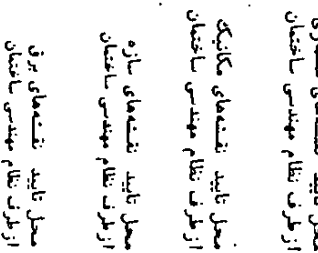 محل تایید نقشه‌های
از طرف نظام مهندسی ساختمان
محل تایید نقشه‌های مکانیک
از طرف نظام مهندسی ساختمان
محل تایید نقشه‌های سازه
از طرف نظام مهندسی ساختمان
محل تایید نقشه‌های برق
از طرف نظام مهندسی ساختمان